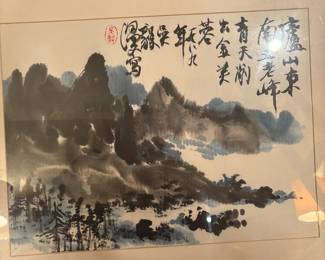 廬山東
南五老峰
青天削
出金芙
蓉
年
吳
漫寫